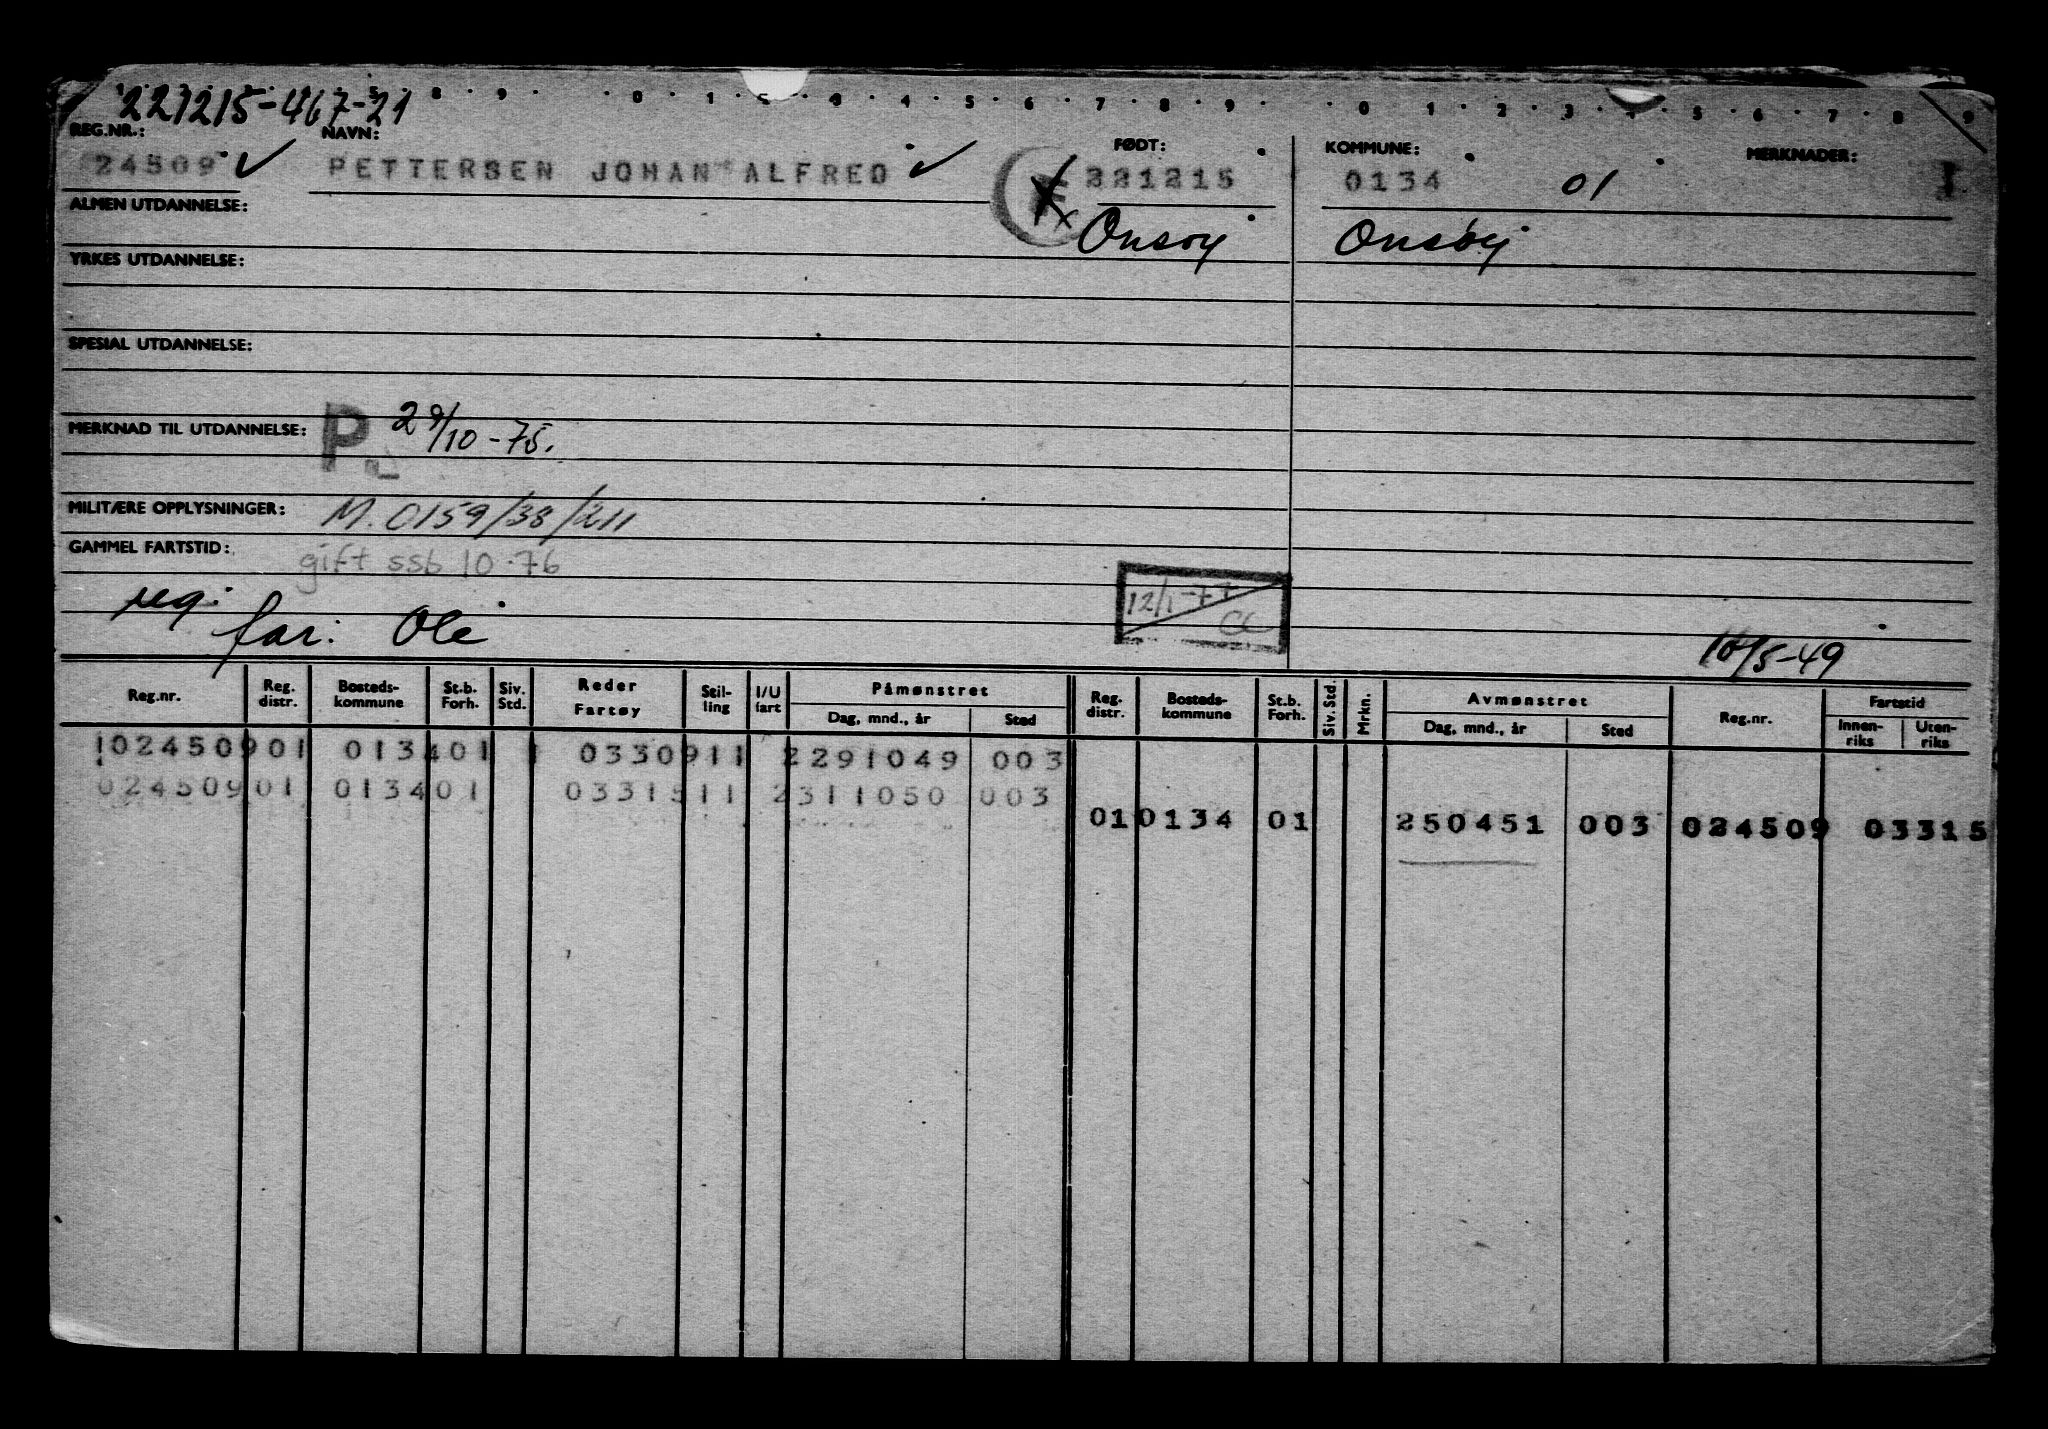 221215-467-21
REG.NR.: NAVN: FØDT: KOMMUNE: MERKNADER:
24509 ✓ PETTERSEN JOHAN ALFRED ✓ 221215 0134 01
ALMEN UTDANNELSE: Onsøy Onsøy
YRKES UTDANNELSE:
SPESIAL UTDANNELSE:
MERKNAD TIL UTDANNELSE: P 29/10-75.
MILITÆRE OPPLYSNINGER: M. 0159/38/211
GAMMEL FARTSTID: gift ssb 10-76
12/1-77
reg:
far: Ole
10/5-49
Reg.nr. Reg. distr. Bosteds-kommune St.b. Forh. Siv. Std. Reder Fartøy Stil-ling I/U fart Påmønstret Dag, mnd., år Sted Reg. distr. Bosteds-kommune St.b. Forh. Siv. Std. Mrkn. Avmønstret Dag, mnd., år Sted Reg.nr. Fartstid Innen-riks Uten-riks
102450901 013401 1 0330911 2291049 003
02450901 013401 0331511 2311050 003
010134 01 250451 003 024509 03315